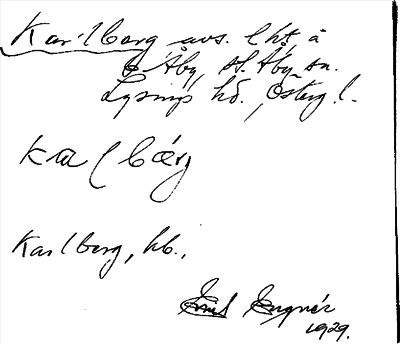 Karlberg avs. lht å
Åby, St. Åby sn.
Lysings hd. Österg. l.
Kalbärj
Karlberg, hb.,
1929.